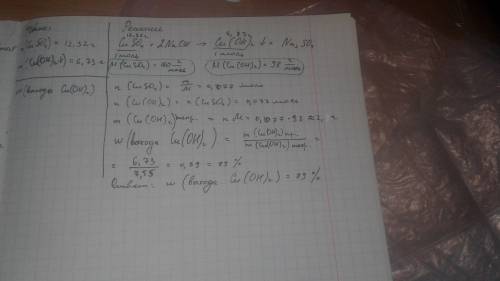 Решение
m(CuSO₄) = 12,32 г
m(Cu(OH)₂↓) = 6,73 г
w(выхода Cu(OH)₂)
12,32г 6,73
CuSO₄ + 2NaOH → Cu(OH)₂↓ + Na₂SO₄
1 моль 1 моль
M(CuSO₄) = 160 г/моль M(Cu(OH)₂) = 98 г/моль
n(CuSO₄) = m/M = 0,077 моль
n(Cu(OH)₂) = n(CuSO₄) = 0,077 моль
m(Cu(OH)₂)теор. = n·M = 0,077·98 =
w(выхода Cu(OH)₂) = m(Cu(OH)₂)пр. / m(Cu(OH)₂)теор. =
= 6,73/7,55 = 0,89 = 89 %
Ответ: w(выхода Cu(OH)₂) = 89 %